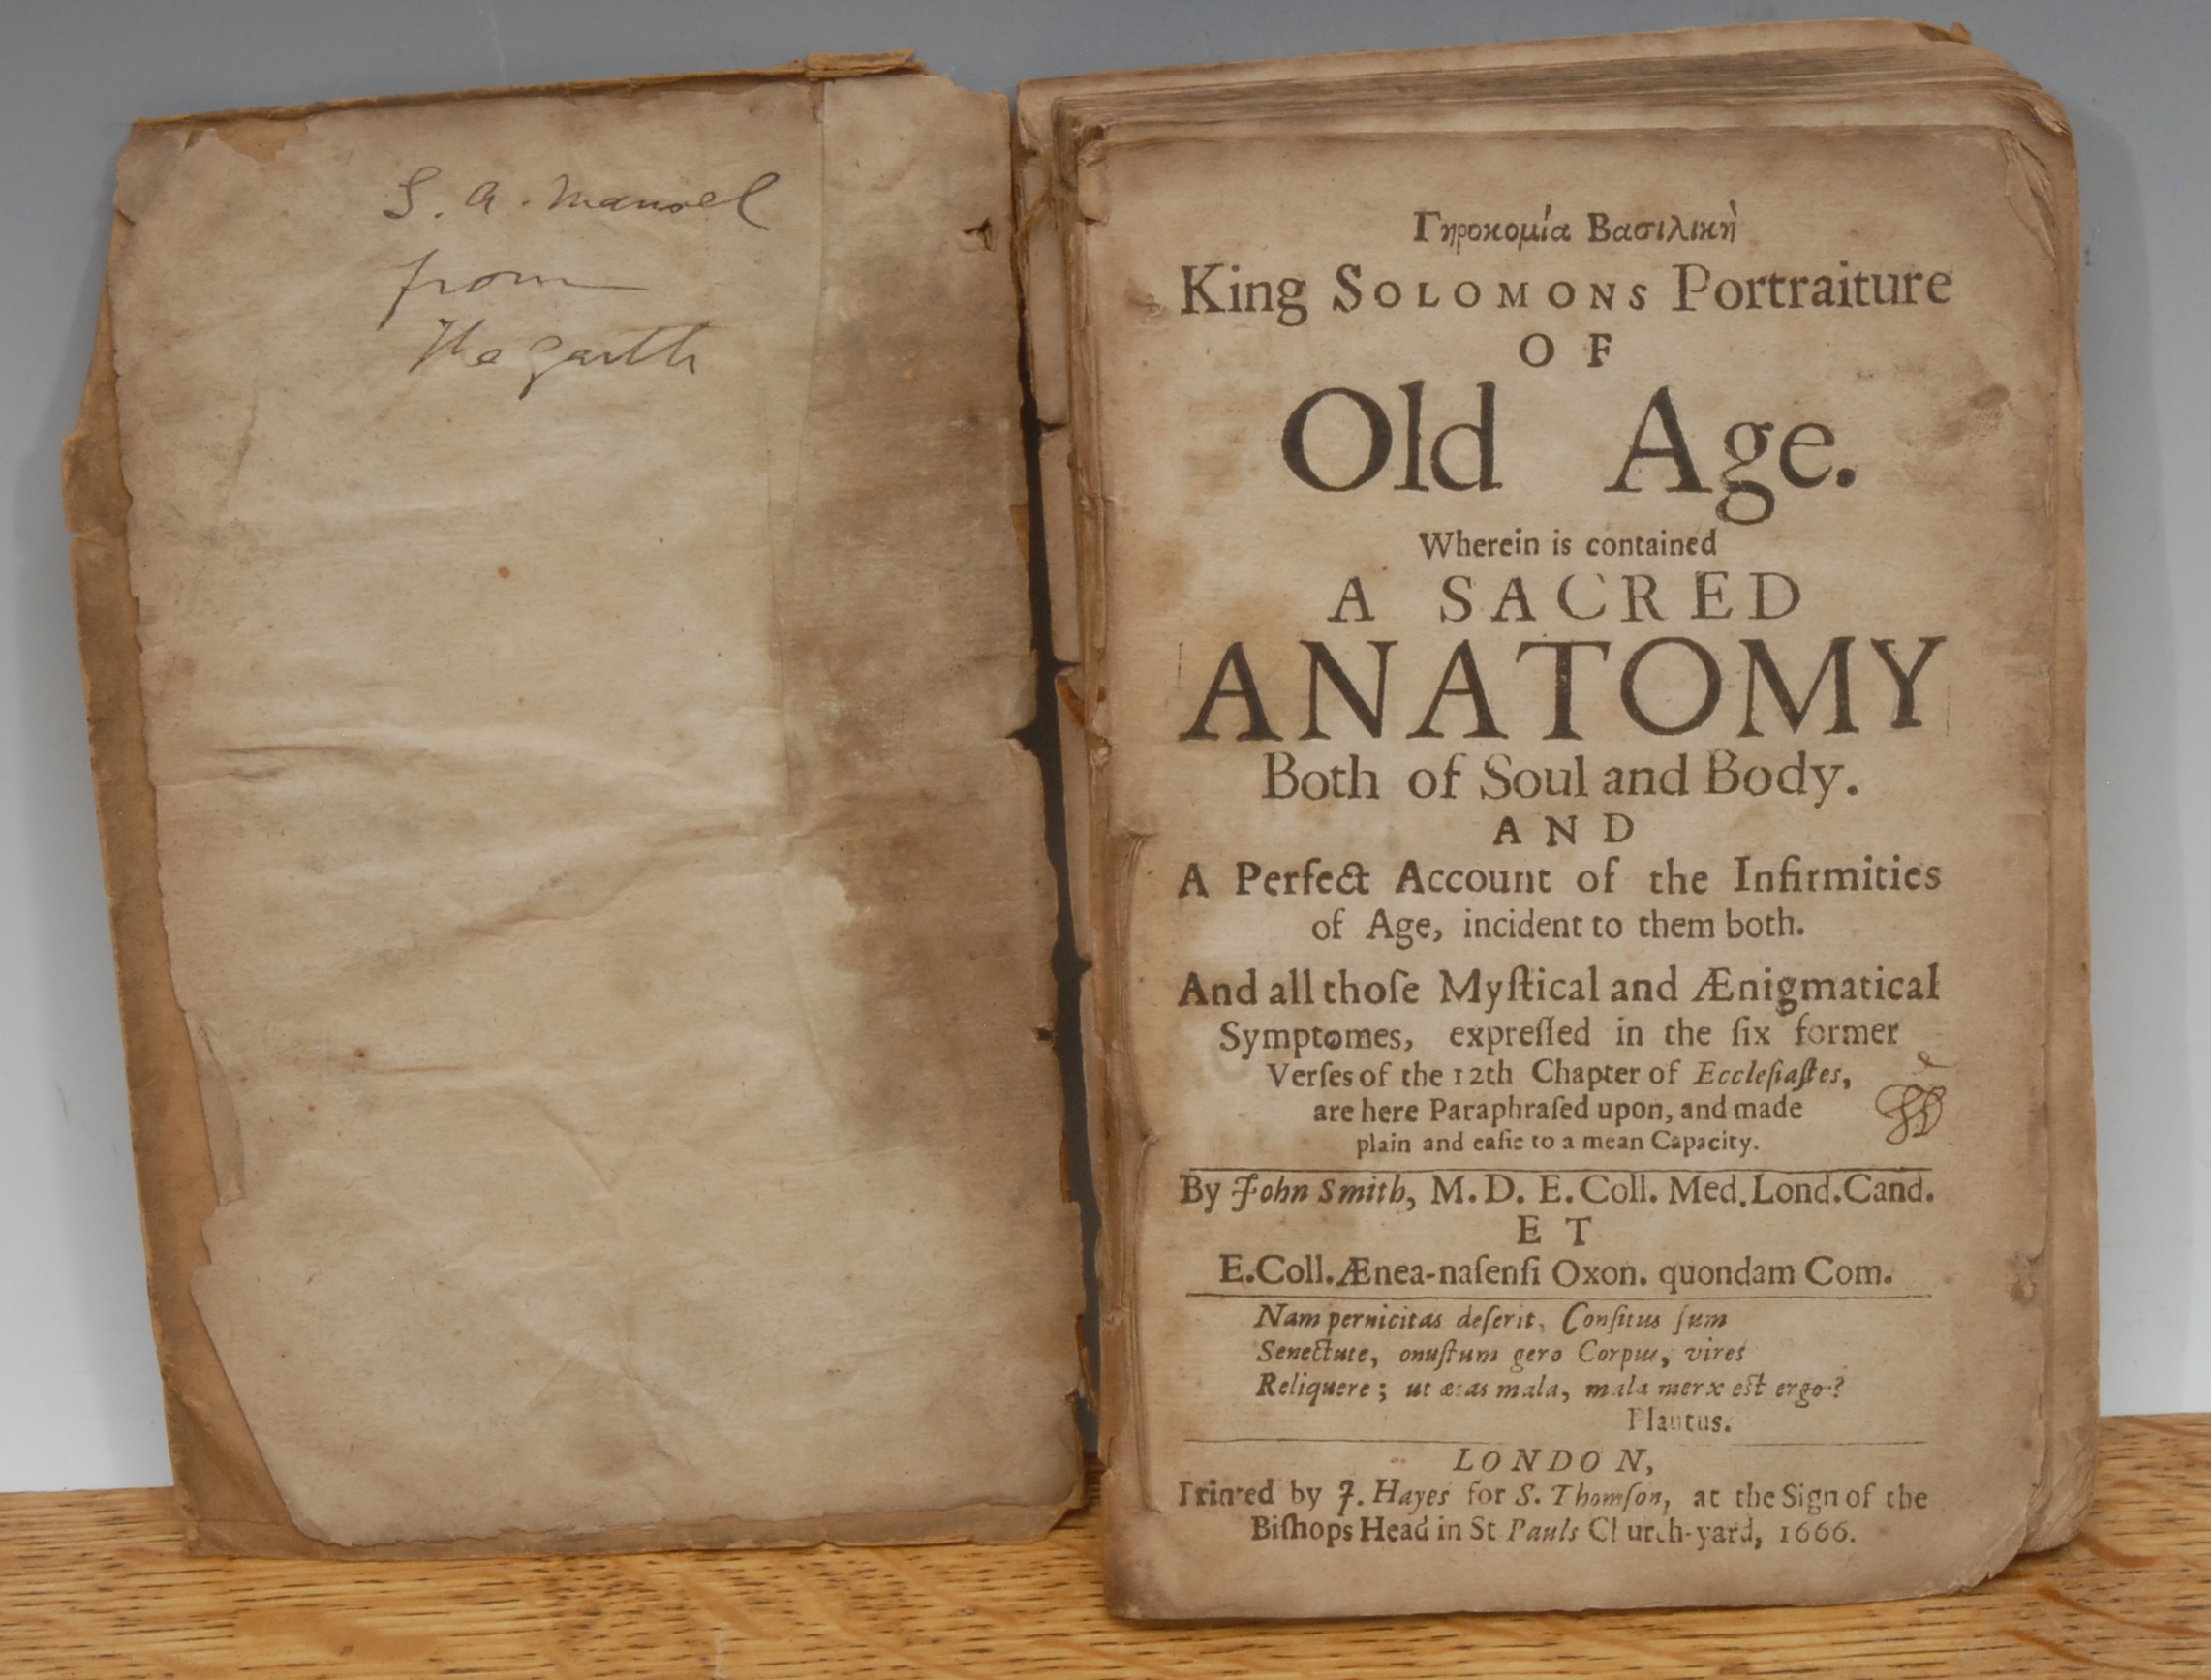 S. A. Mansel
from
The Garth
Γηροκομία Βασιλικὴ
King SOLOMONS Portraiture
OF
Old Age.
Wherein is contained
A SACRED
ANATOMY
Both of Soul and Body.
AND
A Perfect Account of the Infirmities
of Age, incident to them both.
And all thoſe Myſtical and Ænigmatical
Symptomes, expreſſed in the ſix former
Verſes of the 12th Chapter of Eccleſiaſtes,
are here Paraphraſed upon, and made
plain and eaſie to a mean Capacity.
By John Smith, M.D. E. Coll. Med. Lond. Cand.
ET
E. Coll. Ænea-naſenſi Oxon. quondam Com.
Nam pernicitas deſerit, Conſitus ſum
Senectute, onuſtum gero Corpus, vires
Reliquere; ut ætas mala, mala merx est ergo?
Plautus.
LONDON,
Printed by J. Hayes for S. Thomſon, at the Sign of the
Biſhops Head in St Pauls Church-yard, 1666.